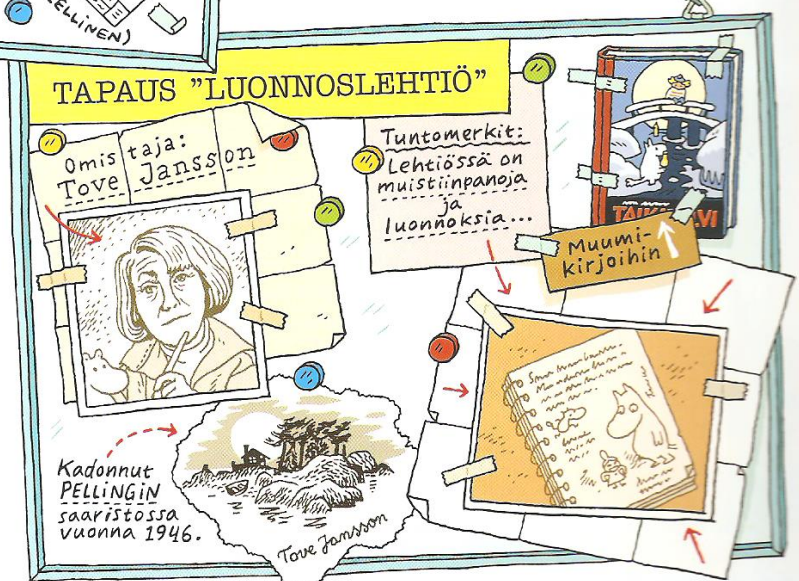 ELLINEN)
TAPAUS "LUONNOSLEHTIÖ"
Omistaja:
Tove Jansson
Tuntomerkit:
Lehtiössä on
muistiinpanoja
ja
luonnoksia...
Muumi-
kirjoihin
Kadonnut
PELLINGIN
saaristossa
vuonna 1946.
Tove Jansson